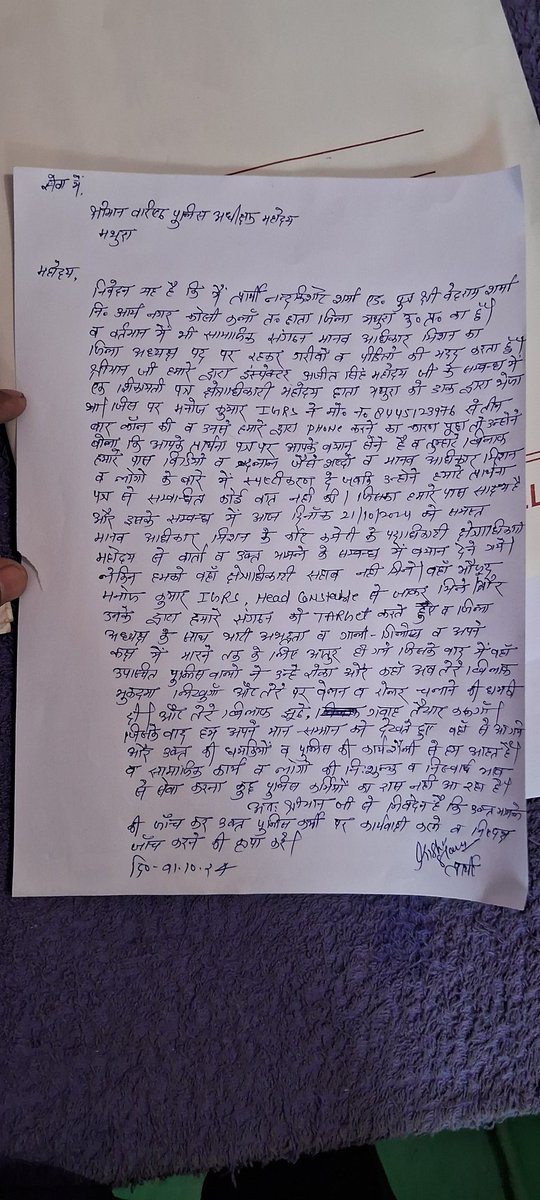 सेवा में,
श्रीमान वरिष्ठ पुलिस अधीक्षक महोदय
मथुरा
महोदय,
निवेदन यह है कि मैं प्रार्थी नन्दकिशोर शर्मा एड० पुत्र श्री वेदराम शर्मा
नि० आर्य नगर कोसी कलाँ त० छाता जिला मथुरा उ० प्र० का हूँ।
व वर्तमान में भी सामाजिक संगठन मानव अधिकार मिशन का
जिला अध्यक्ष पद पर रहकर गरीबों व पीड़ितों की मदद करता हूँ।
श्रीमान जी हमारे द्वारा इंस्पेक्टर अजीत सिंह महोदय जी के सम्बन्ध में
एक शिकायती पत्र क्षेत्राधिकारी महोदय छाता मथुरा को डाक द्वारा भेजा
था। जिस पर मनोज कुमार IGRS ने मो० न० से तीन
बार कॉल की व उनसे हमारे द्वारा PHONE करने का कारण पूछा तो उन्होंने
बोला कि आपके प्रार्थना पत्र पर आपके बयान होने है व तुम्हारे खिलाफ
हमारे पास व जैसे शब्दों व मानव अधिकार मिशन
व लोगों के बारे में स्पष्टीकरण दे जबकि उन्होंने हमारे प्रार्थना
पत्र से सम्बन्धित कोई बात नहीं की। जिसका हमारे पास साक्ष्य है
और इसके सम्बन्ध में आज दिनाँक 21/10/2024 को समस्त
मानव अधिकार मिशन के कोर कमेटी के पदाधिकारी क्षेत्राधिकारी
महोदय से वार्ता व उक्त मामले के सम्बन्ध में बयान देने गये।
लेकिन हमको वहाँ क्षेत्राधिकारी साहब नहीं मिले। वहाँ मौजूद
मनोज कुमार IGRS, Head Constable से जाकर मिले और
उनके द्वारा हमारे संगठन को TARGET करते हुए व जिला
अध्यक्ष के साथ भारी अभद्रता व गाली-गिलौच व अपने
कक्ष में मारने तक के लिए आतुर हो गये जिसके बाद में वहाँ
उपस्थित पुलिस वालो ने उन्हे रोका और कहाँ अब तेरे खिलाफ
मुकदमा लिखूगाँ और तेरे पर व चलाने की धमकी
दी। और तेरे खिलाफ झूठे गवाह तैयार करूगाँ।
जिसके बाद हम अपने मान-सम्मान को देखते हुए वहाँ से आ गये
और उक्त की धमकियों व पुलिस की कार्यशैली से हम आहत है।
व सामाजिक कार्य व लोगो की निःशुल्क व निस्वार्थ भाव
से सेवा करना कुछ पुलिस कर्मियों का रास नहीं आ रहा है।
अतः श्रीमान जी से निवेदन है कि उक्त मामले
की जाँच कर उक्त पुलिस कर्मी पर कार्यवाही करने व निष्पक्ष
जाँच करने की कृपा करें।
प्रार्थी